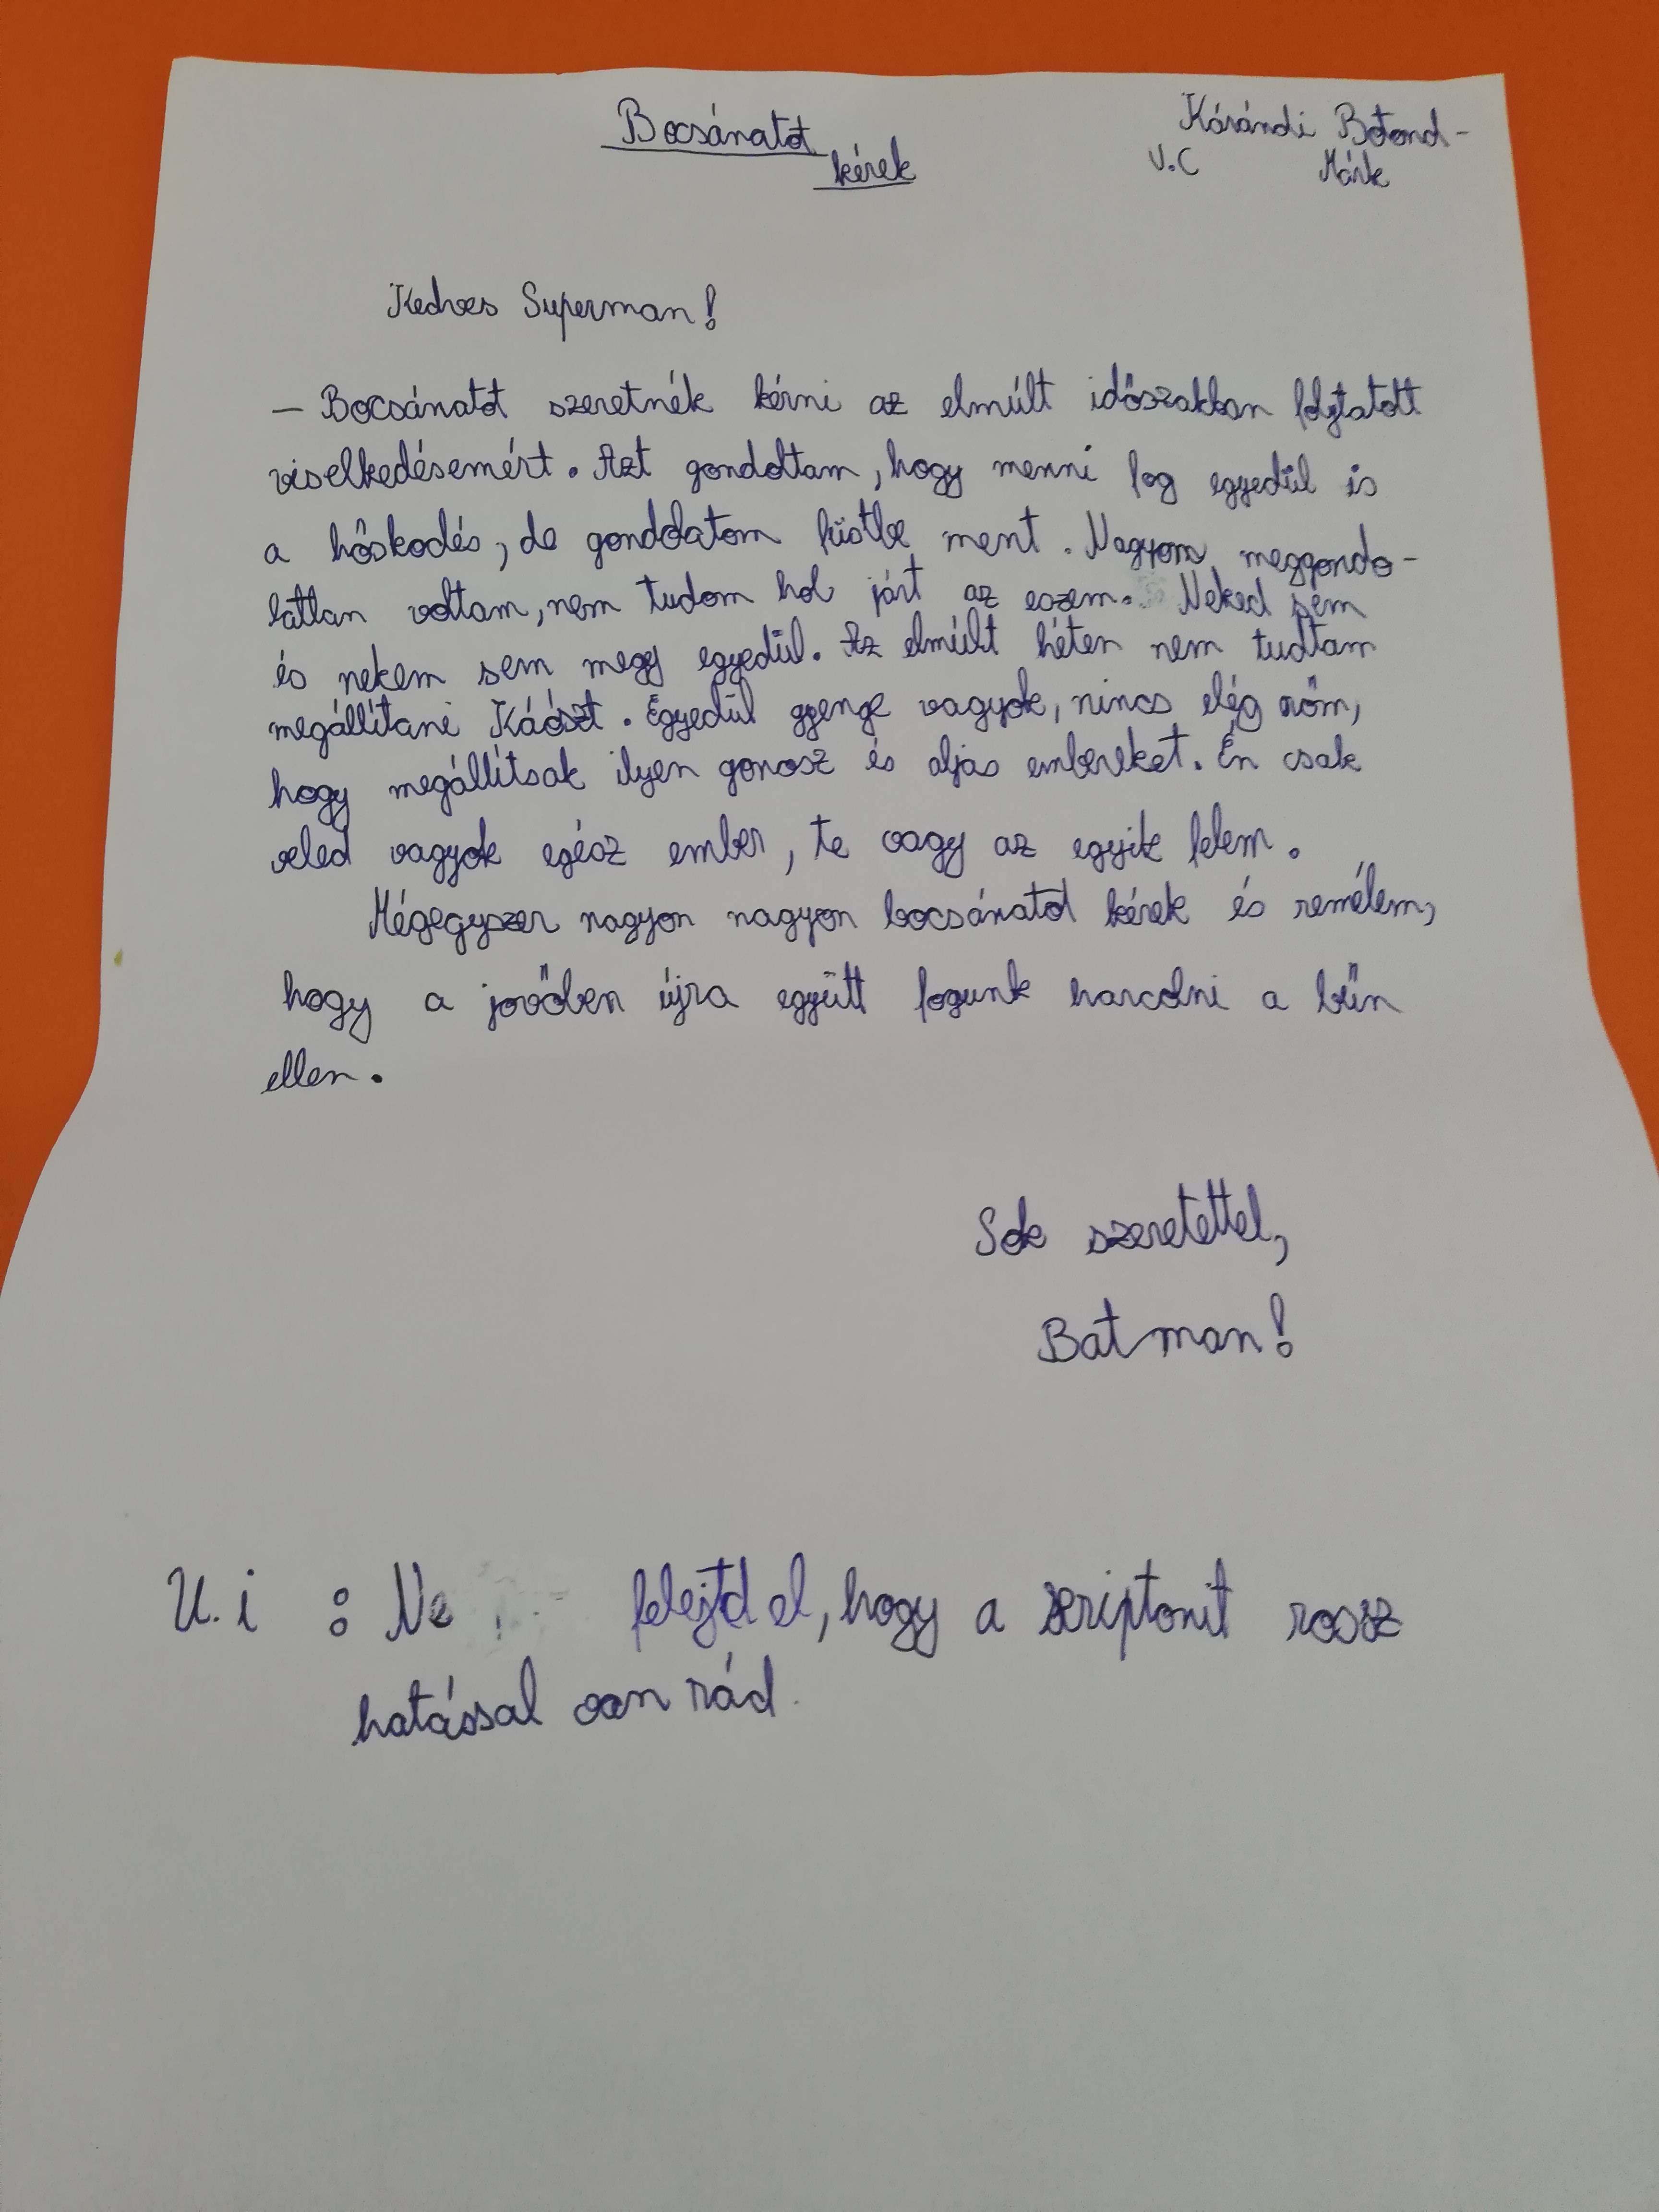 Bocsánatot
kérek
Kárándi Botond-
V.C Márk
Kedves Superman!
– Bocsánatot szeretnék kérni az elmúlt időszakban folytatott
viselkedésemért. Azt gondoltam, hogy menni fog egyedül is
a hőskodés, de gondolatom füstbe ment. Nagyon meggondo-
latlan voltam, nem tudom hol járt az eszem. Neked sem
és nekem sem megy egyedül. Az elmúlt héten nem tudtam
megállítani Káószt. Egyedül gyenge vagyok, nincs elég
hogy megállítsak ilyen gonosz és aljas embereket. Én csak
veled vagyok egész ember, te vagy az egyik felem.
Mégegyszer nagyon nagyon bocsánatot kérek és remélem,
hogy a jovőben újra együtt fogunk harcolni a bűn
ellen.
Sok szeretettel,
Batman!
U.i : Ne felejtd el, hogy a kriptonit rossz
hatással van rád.